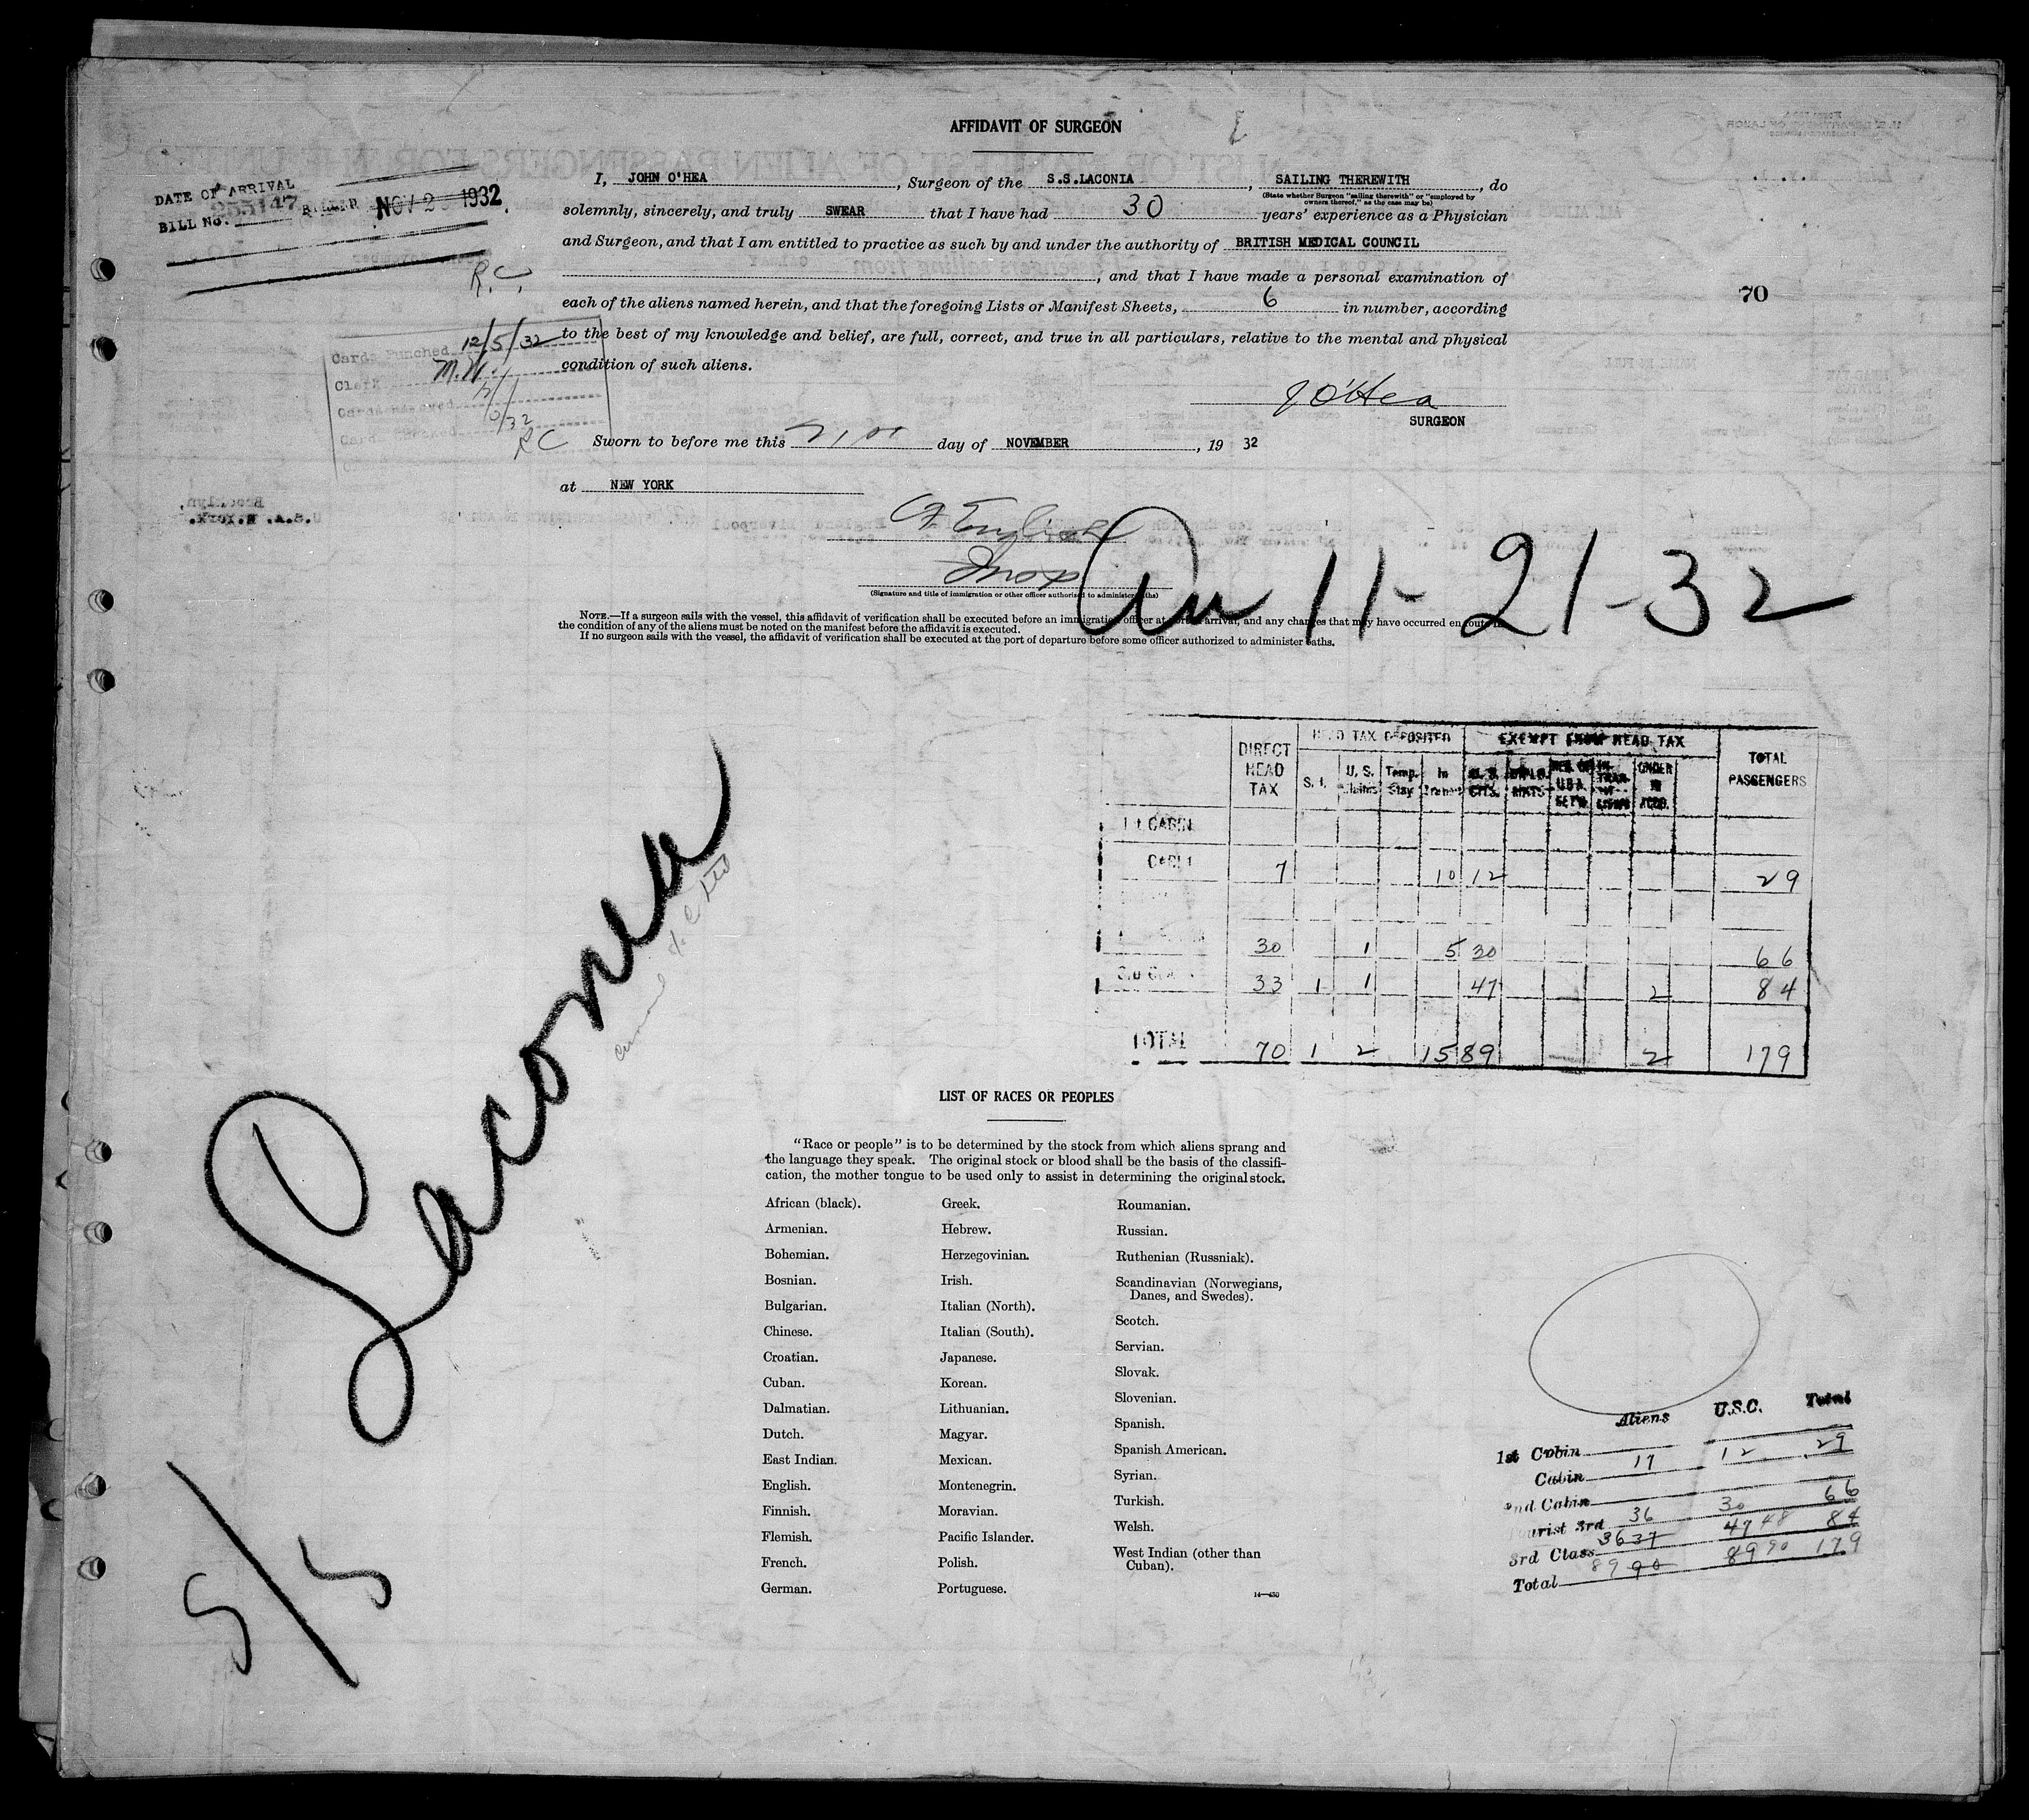 AFFIDAVIT OF SURGEON
DATE OF ARRIVAL
BILL No. 255147 NOV 2 1932
R.C.
I, JOHN O'HEA, Surgeon of the S.S.LACONIA, SAILING THEREWITH, do
(State whether Surgeon "sailing therewith" or "employed by
owners thereof," as the case may be)
solemnly, sincerely, and truly SWEAR that I have had 30 years' experience as a Physician
and Surgeon, and that I am entitled to practice as such by and under the authority of BRITISH MEDICAL COUNCIL
, and that I have made a personal examination of
each of the aliens named herein, and that the foregoing Lists or Manifest Sheets, 6 in number, according
to the best of my knowledge and belief, are full, correct, and true in all particulars, relative to the mental and physical
condition of such aliens.
70
Cards Punched 12/5/32
Clerk M.W.
RC
J O'Hea
SURGEON
Sworn to before me this day of NOVEMBER, 19 32
at NEW YORK
(Signature and title of immigration or other officer authorized to administer oaths)
11-21-32
NOTE.—If a surgeon sails with the vessel, this affidavit of verification shall be executed before an immigration officer at arrival, and any changes that may have occurred en route in
the condition of any of the aliens must be noted on the manifest before the affidavit is executed.
If no surgeon sails with the vessel, the affidavit of verification shall be executed at the port of departure before some officer authorized to administer oaths.
DIRECT HEAD TAX
HEAD TAX DEPOSITED
EXEMPT FROM HEAD TAX
TOTAL PASSENGERS
S. I. U. S. Temp. Stay In Transit U. S. CITS. UNDER IN ACCO.
1st CABIN
CABIN 7 10 12 29
30 1 5 30 66
3rd CLASS 33 1 1 47 2 84
TOTAL 70 1 2 15 89 2 179
Laconia
S/S
LIST OF RACES OR PEOPLES
"Race or people" is to be determined by the stock from which aliens sprang and
the language they speak. The original stock or blood shall be the basis of the classifi-
cation, the mother tongue to be used only to assist in determining the original stock.
African (black).
Armenian.
Bohemian.
Bosnian.
Bulgarian.
Chinese.
Croatian.
Cuban.
Dalmatian.
Dutch.
East Indian.
English.
Finnish.
Flemish.
French.
German.
Greek.
Hebrew.
Herzegovinian.
Irish.
Italian (North).
Italian (South).
Japanese.
Korean.
Lithuanian.
Magyar.
Mexican.
Montenegrin.
Moravian.
Pacific Islander.
Polish.
Portuguese.
Roumanian.
Russian.
Ruthenian (Russniak).
Scandinavian (Norwegians,
Danes, and Swedes).
Scotch.
Servian.
Slovak.
Slovenian.
Spanish.
Spanish American.
Syrian.
Turkish.
Welsh.
West Indian (other than
Cuban).
14—430
Aliens U.S.C. Total
1st Cabin
Cabin 17 12 29
2nd Cabin
Tourist 3rd 36 30 66
3rd Class 36 37 47 48 84
Total 89 90 89 90 179